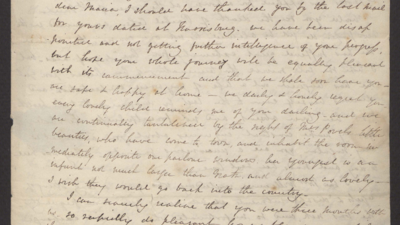 dear Maria I should have thanked you by the last mail
for yours dated at Harrisburg. we have been disap
pointed not getting further intelligence of your progress,
but hope your whole journey will be equally pleasant
with its commencement and that we shall soon hear you
are safe & happy at home — we daily & hourly regret you
every lovely child reminds me of your darling and we
are continually tantalized by the sight of Mrs little
beauties, who have come to town, and inhabit the room im
mediately opposite our parlour windows her youngest is an
infant not much larger than and almost as lovely —
I wish they would go back into the country —
I can scarcely realize that you were three months with
us, so swiftly do pleasant